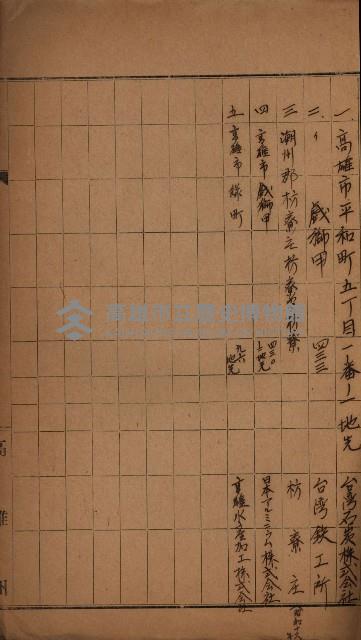 一、高雄市平和町五丁目一番ノ一地先 台湾石炭株式会社
二、〃 戯獅甲 四三三 台湾鉄工所
三 潮州郡枋寮庄枋寮字枋寮 枋寮庄
四 高雄市戯獅甲 四三〇ノ二地先 日本アルミニウム株式会社
五 高雄市緑町 九六地先 高雄水産加工株式会社
高雄州
高雄市立歷史博物館